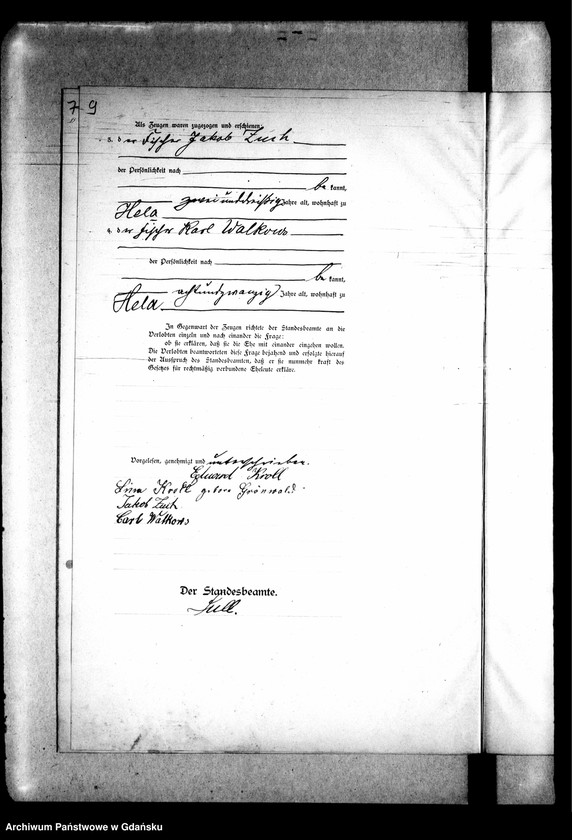 7 9
Als Zeugen waren zugezogen und erschienen:
3. der Fischer Jakob Zuch
der Persönlichkeit nach
bekannt,
zweiunddreißig Jahre alt, wohnhaft zu
Hela
4. der Fischer Karl Walkows
der Persönlichkeit nach
bekannt,
achtundzwanzig Jahre alt, wohnhaft zu
Hela
In Gegenwart der Zeugen richtete der Standesbeamte an die
Verlobten einzeln und nach einander die Frage:
ob sie erklären, daß sie die Ehe mit einander eingehen wollen.
Die Verlobten beantworteten diese Frage bejahend und erfolgte hierauf
der Ausspruch des Standesbeamten, daß er sie nunmehr kraft des
Gesetzes für rechtmäßig verbundene Eheleute erkläre.
Vorgelesen, genehmigt und unterschrieben.
Eduard Kroll
Kroll geborene Grönwold
Jakob Zuch
Carl Walkows
Der Standesbeamte.
Archiwum Państwowe w Gdańsku